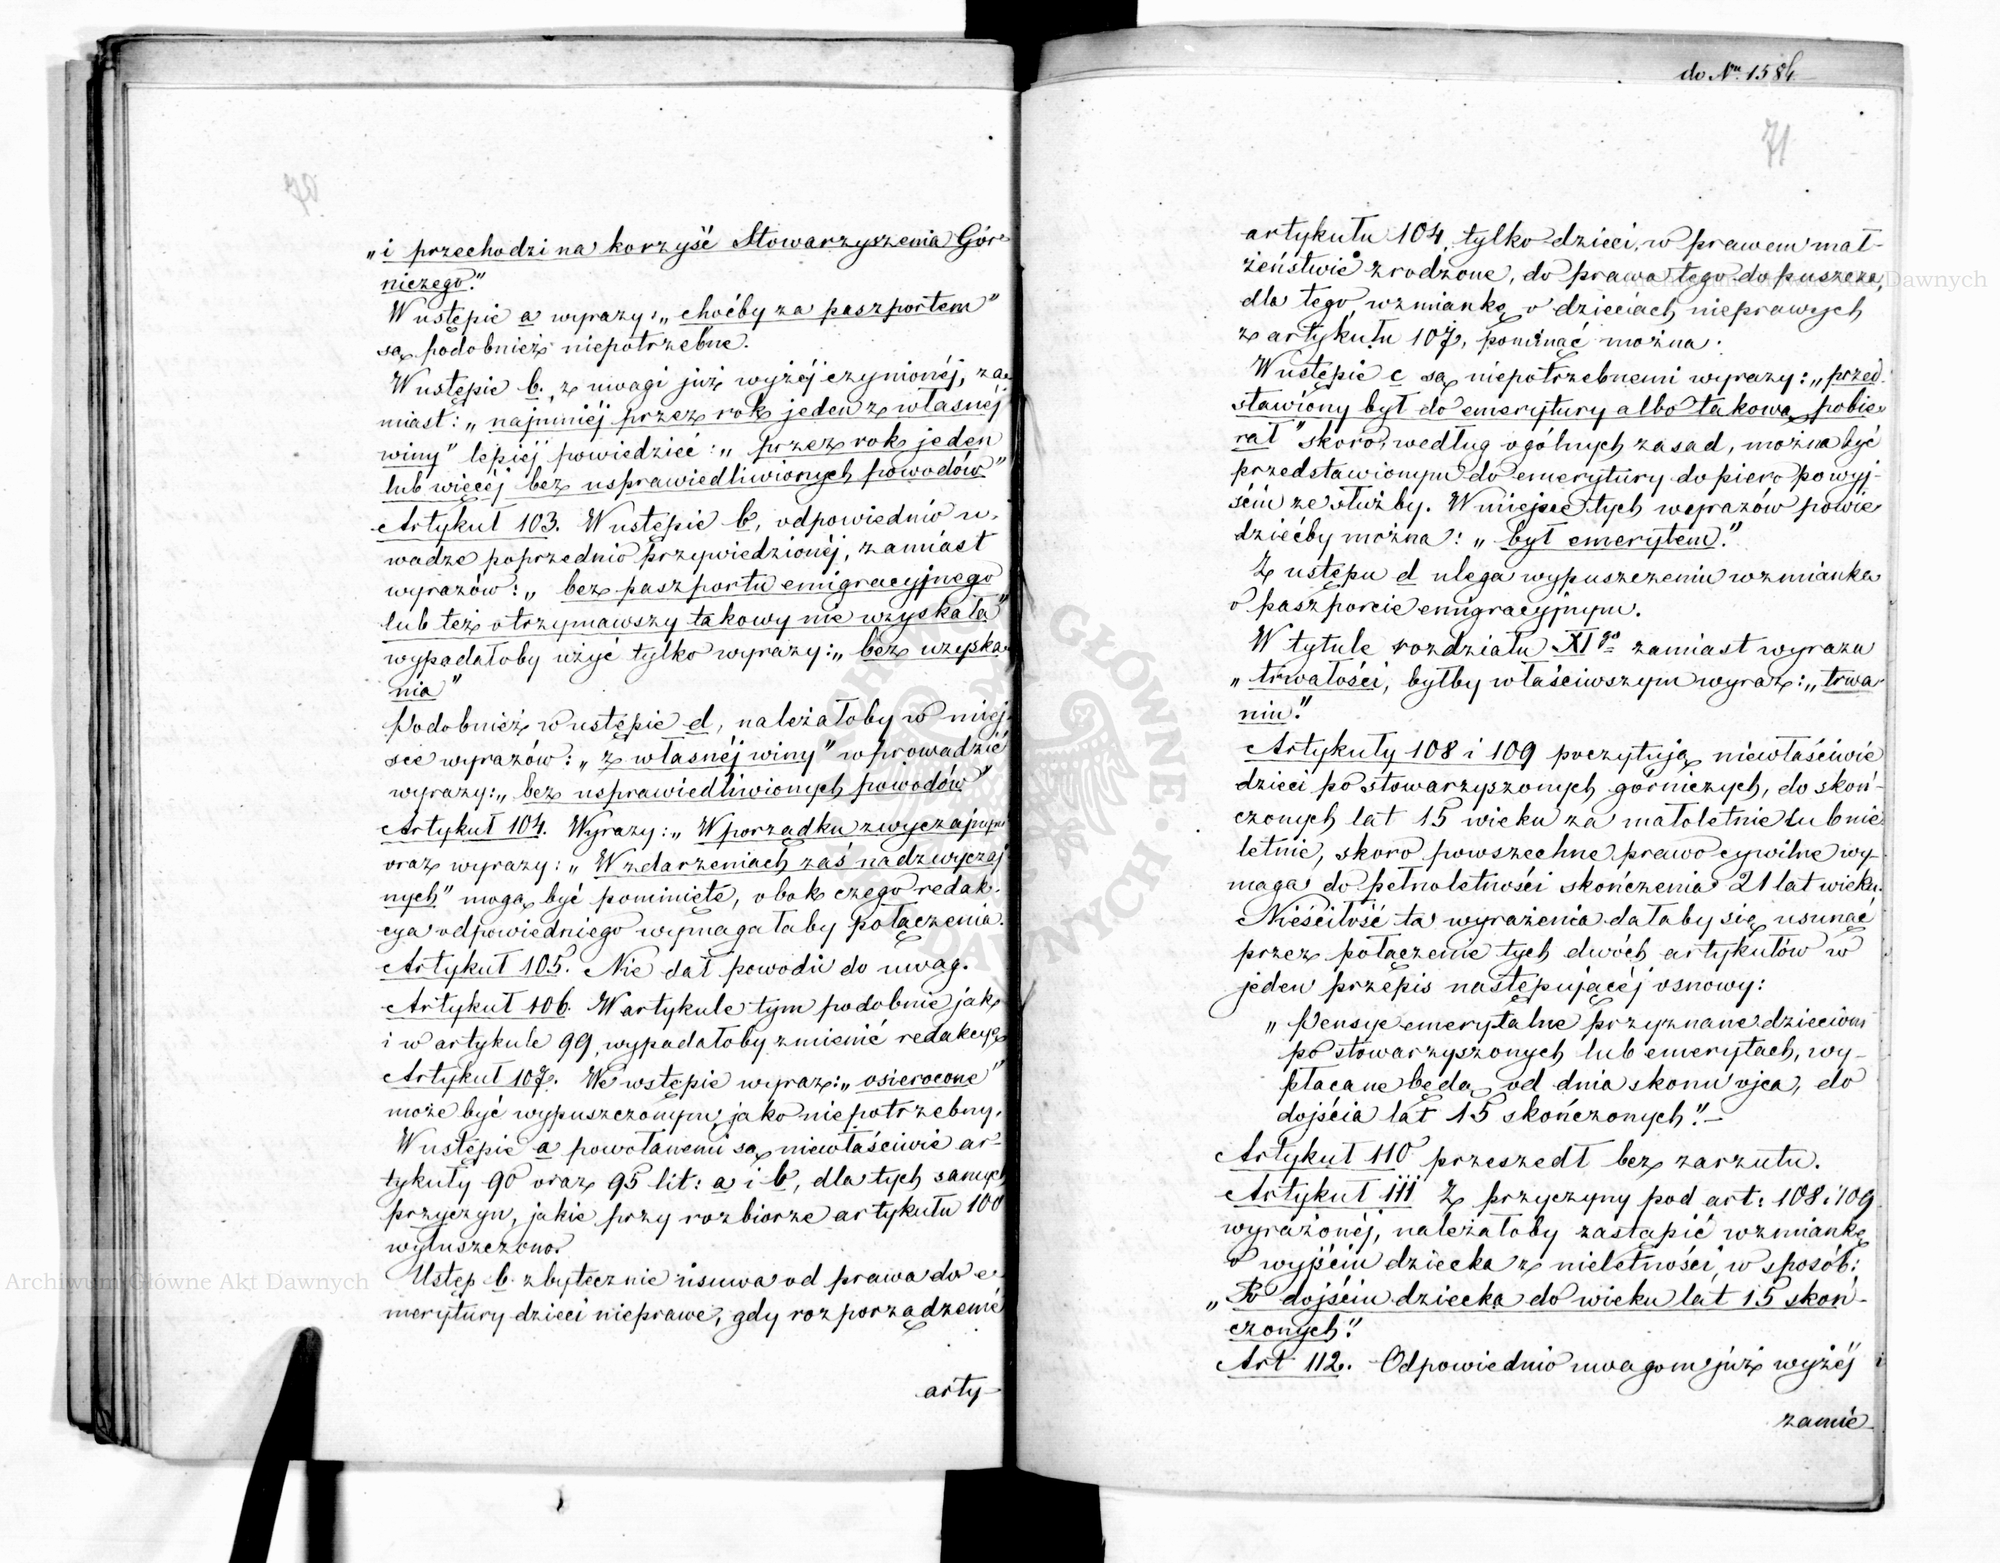 „i przechodzi na korzyść Stowarzyszenia Gór-
niczego."
W ustępie a wyrazy: „choćby za paszportem"
są podobnież niepotrzebne.
W ustępie b. z uwagi już wyżéj czynionéj, za-
miast: „najmniéj przez rok jeden z własnéj
winy" lepiéj powiedzieć: „przez rok jeden
lub więcéj bez usprawiedliwionych powodów"
Artykuł 103. W ustępie b, odpowiednio u-
wadze poprzednio przywiedzionéj, zamiast
wyrazów: „bez paszportu emigracyjnego
lub też otrzymawszy takowy nie uzyskała"
wypadałoby użyć tylko wyrazy: „bez uzyska-
nia"
Podobnież w ustępie d, należałoby w miej-
sce wyrazów: „z własnéj winy" wprowadzić
wyrazy: „bez usprawiedliwionych powodów"
Artykuł 104. Wyrazy: „W porządku zwyczajnym
oraz wyrazy: „W zdarzeniach zaś nadzwyczaj-
nych" mogą być pominięte, obok czego redak-
cya odpowiedniego wymagałaby połączenia.
Artykuł 105. Nie dał powodu do uwag.
Artykuł 106. W artykule tym podobnie jak
i w artykule 99, wypadałoby zmienić redakcyę
Artykuł 107. We wstępie wyraz: „osierocone"
może być wypuszczonym, jako niepotrzebny.
W ustępie a powołanemi są niewłaściwie ar-
tykuły 90 oraz 95 lit: a i b, dla tych samych
przyczyn, jakie przy rozbiorze artykułu 100
wyłuszczono.
Ustęp b. zbytecznie usuwa od prawa do e-
merytury dzieci nieprawe, gdy rozporządzenie
arty-
do Nru 1586
71
artykułu 104, tylko dzieci, w prawem mał-
żeństwie zrodzone, do prawa tego dopuszcza,
dla tego wzmiankę o dzieciach nieprawych
z artykułu 107, pominąć można.
W ustępie c są niepotrzebnemi wyrazy: „przed-
stawiony był do emerytury albo takową pobie-
rał" skoro, według ogólnych zasad, można być
przedstawionym do emerytury dopiero po wyj-
ściu ze służby. W miejsce tych wyrazów powie-
dziećby można: „był emerytem."
Z ustępu d ulega wypuszczeniu wzmianka
o paszporcie emigracyjnym.
W tytule rozdziału XIgo zamiast wyrazu
„trwałości, byłby właściwszym wyraz: „trwa-
niu."
Artykuły 108 i 109 poczytują niewłaściwie
dzieci po stowarzyszonych górniczych, do skoń-
czonych lat 15 wieku za małoletnie lub nie-
letnie, skoro powszechne prawo cywilne wy-
maga do pełnoletności skończenia 21 lat wieku.
Nieścisłość ta wyrażenia dałaby się usunąć
przez połączenie tych dwóch artykułów w
jeden przepis następującéj osnowy:
„Pensye emerytalne przyznane dzieciom
po stowarzyszonych lub emerytach, wy-
płacane będą od dnia skonu ojca, do
dojścia lat 15 skończonych".-
Artykuł 110 przeszedł bez zarzutu.
Artykuł 111 Z przyczyny pod art: 108 i 109
wyrażonéj, należałoby zastąpić wzmiankę
o wyjściu dziecka z nieletności, w sposób:
„Po dojściu dziecka do wieku lat 15 skoń-
czonych".
Art 112. Odpowiednio uwagom już wyżéj
zamie-
Archiwum Główne Akt Dawnych